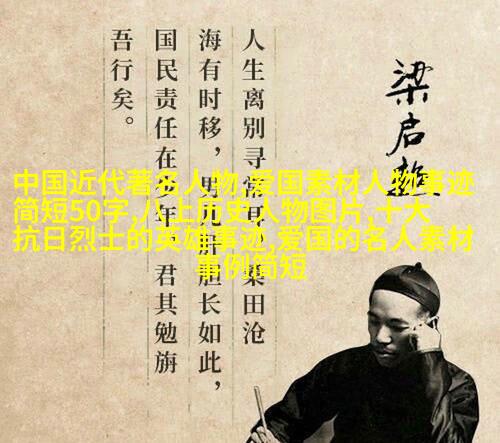 梁启超
人生离别寻常耳,桑田沧
海有时移,男儿肝胆长如此,
国民责任在少年 君其勉旃
吾行矣。
中国近代著名人物,爱国素材人物事迹
简短50字,八上历史人物图片,十大
抗日烈士的英雄事迹,爱国的名人素材
事例简短